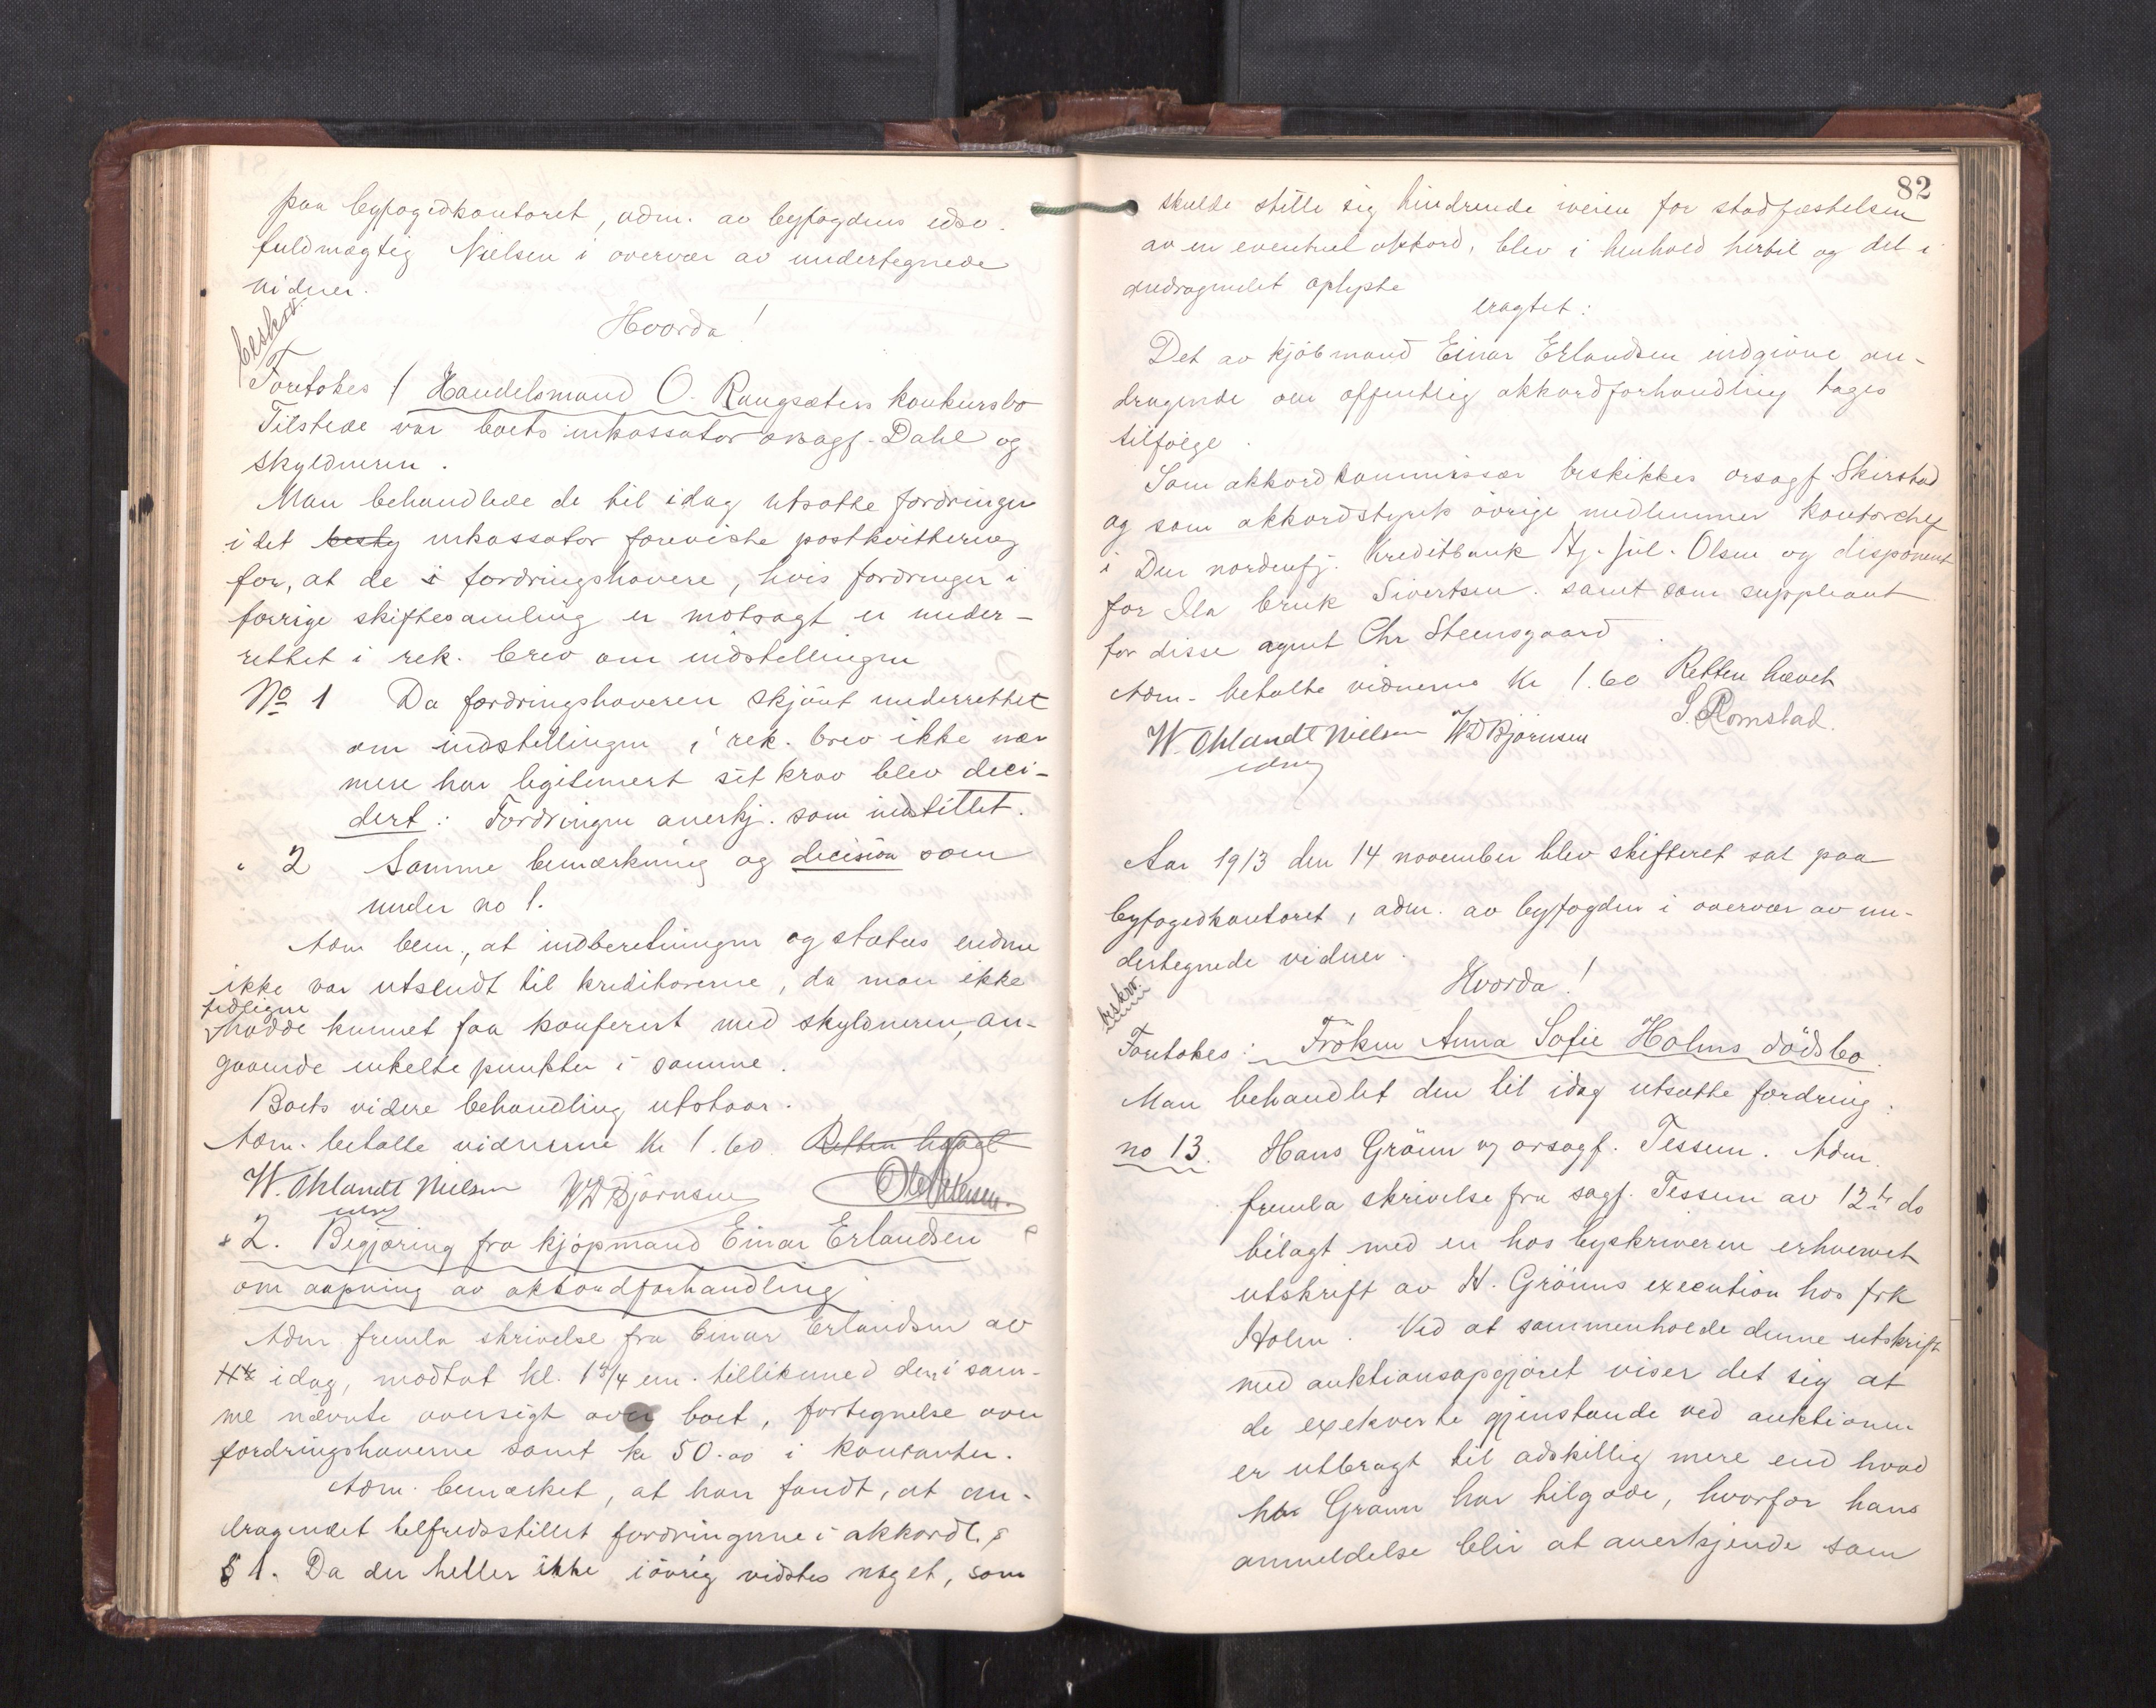 paa byfogedkontoret, adm. av byfogdens edsv.
fuldmægtig Nielsen i overvær av undertegnede
vidner.
Hvorda!
beskrv.
Foretokes 1 Handelsmand O. Raugsætens konkursbo
Tilstede var boets inkassator orsagf. Dahl og
skyldneren.
Man behandlede de til idag utsatte fordringer
idet besty inkassator foreviste postkvittering
for, at de i fordringshavere, hvis fordringer i
forrige skiftesamling er motsagt er under-
rettet i rek. brev om indstillingen
No 1 Da fordringshaveren skjønt underrettet
om indstillingen i rek. brev ikke nær
mere har legitimert sit krav blev deci-
dert: Fordringen anerkj. som indstillet.
" 2 Samme bemærkning og decision som
under no 1.
Adm bem., at indberetningen og status endnu
ikke var utsendt til kreditorerne, da man ikke
tidligere
hadde kunnet faa konferert med skyldneren, an-
gaaende enkelte punkter i samme.
Boets videre behandling utstaar.
Adm. betalte vidnerne kr 1.60. Retten hævet
W. Ohlandt Nielsen W D Bjørnsen
edsv
2. Begjæring fra kjøpmand Einar Erlandsen
om aapning av akkordforhandling
Adm fremla skrivelse fra Einar Erlandsen av
idag, modtat kl. 1 3/4 em. tillikemed den i sam-
me nævnte oversigt over boet, fortegnelse over
fordringshaverne samt kr 50.00 i kontanter.
Adm. bemerket, at han fandt, at an-
dragendet tilfredsstillet fordringerne i akkordl.s
§ 1. Da der heller ikke iøvrig vidstes noget, som
82
skulde stille sig hindrende iveien for stadfæstelsen
av en eventuel akkord, blev i henhold hertil og det i
andragendet oplyste
eragtet:
Det av kjøbmand Einar Erlandsen indgivne an-
dragende om offentlig akkordforhandling tages
tilfølge.
Som akkordkommissær beskikkes orsagf Skirstad
og som akkordstyrets øvrige medlemmer kontorchef
i Den nordenfj. Kreditbank Hj. Jul. Olsen og disponent
for Ila bruk Sivertsen. samt som suppleant
for disse agent Chr Steensgaard.
Adm. betalte vidnerne kr 1.60 Retten hævet
S. Romstad.
W. Ohlandt Nielsen W D Bjørnsen
edsv
Aar 1913 den 14 november blev skifteret sat paa
byfogedkontoret, adm. av byfogden i overvær av un-
dertegnede vidner.
Hvorda!
beskrv.
Foretokes: Frøken Anna Sofie Holms dødsbo.
Man behandlet den til idag utsatte fordring:
no 13. Hans Grönn v/ orsagf. Tessem. Adm.
fremla skrivelse fra sagf. Tessem av 12te ds
bilagt med en hos byskriveren erhvervet
utskrift av H. Grönns execution hos frk
Holm. Ved at sammenholde denne utskrift
med auktionsopgjøret viser det sig at
de exekverte gjenstande ved auktionen
er utbragt til adskillig mere end hvad
hr Grönn har tilgode, hvorfor hans
anmeldelse blir at anerkjende som